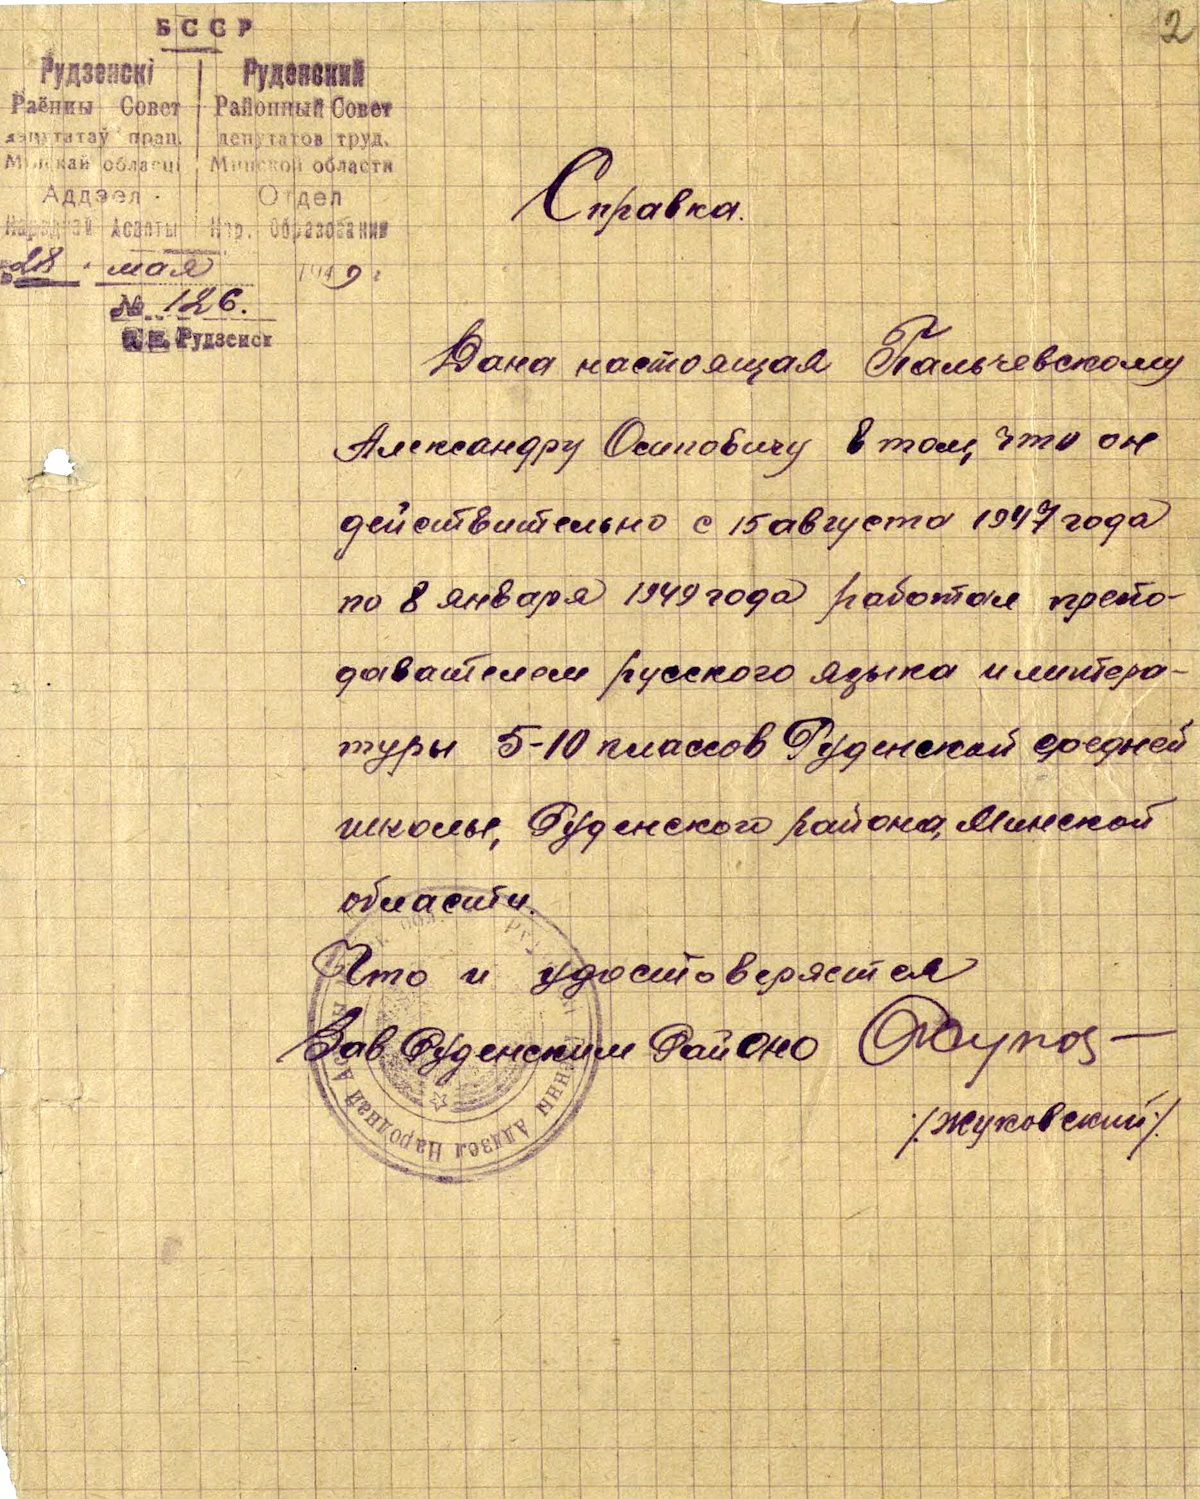 2
БССР
Рудзенскі
Раённы Совет
дэпутатаў прац.
Мінскай обласці
Аддзел
Народнай Асветы
Руденский
Районный Совет
депутатов труд.
Минской области
Отдел
Нар. Образования
28 мая 1949 г
№ 126.
Рудзенск
Справка.
Дана настоящая Пальчевскому
Александру Осиповичу в том, что он
действительно с 15 августа 1947 года
по 8 января 1949 года работал препо-
давателем русского языка и литера-
туры 5-10 классов Руденской средней
школы, Руденского района, Минской
области.
Что и удостоверяется
Зав Руденским Районо
/Жуковский/.
Аддзел Народнай